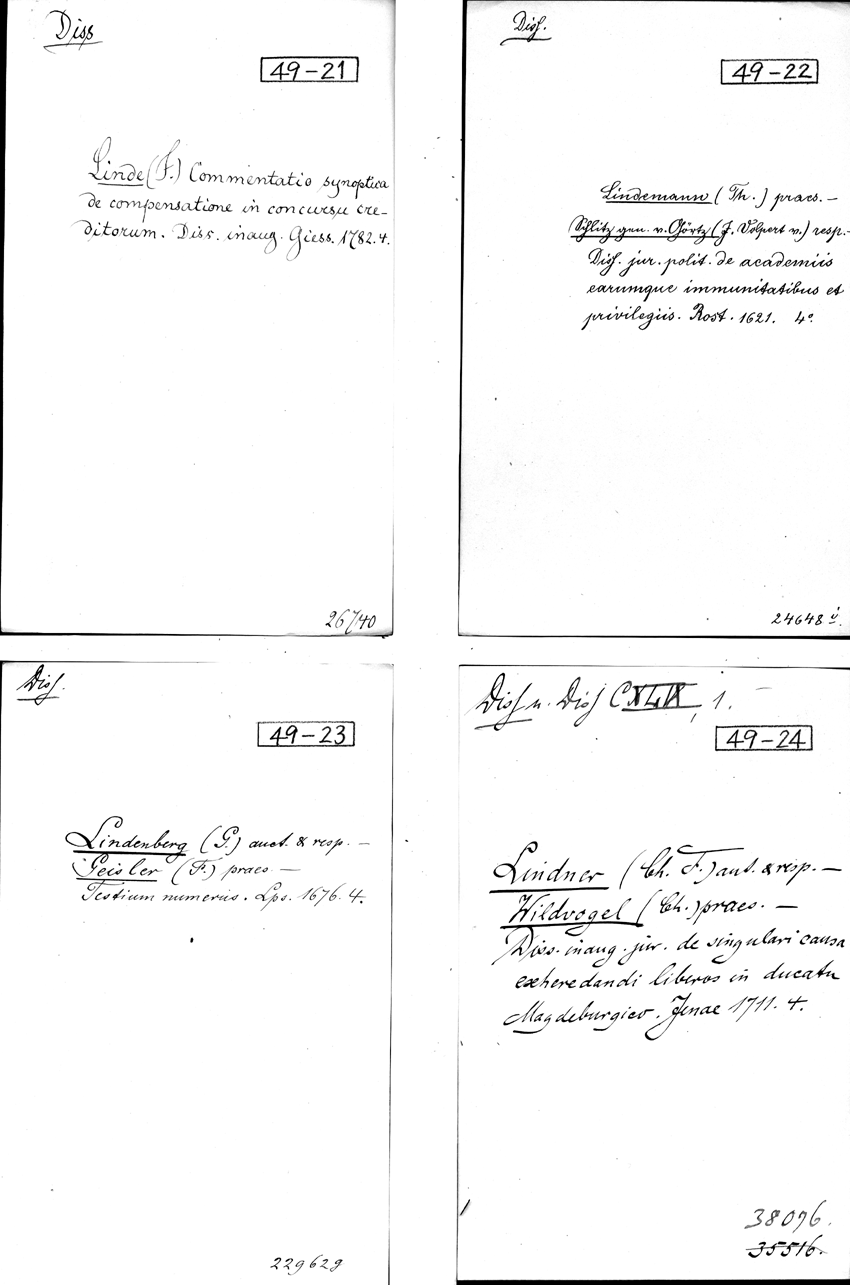 Diss
49-21
Linde (F.) Commentatio synoptica
de compensatione in concursu cre-
ditorum. Diss. inaug. Giess. 1782. 4.
26740
Diss.
49-22
Lindemann (Th.) praes. —
Schlitz gen. v. Görtz (J. Volpert v.) resp. —
Diss. jur. polit. de academiis
earumque immunitatibus et
privilegiis. Rost. 1621. 4°.
24648
Diss.
49-23
Lindenberg (G.) auct. & resp. —
Geisler (F.) praes —
Testium numerus. Lps. 1676. 4.
229629
Diss u. Diss CXLIX, 1.
49-24
Lindner (Ch. F.) aut. & resp. —
Wildvogel (Ch.) praes. —
Diss. inaug. jur. de singulari causa
exheredandi liberos in ducatu
Magdeburgico. Jenae 1711. 4.
38096.
35516.